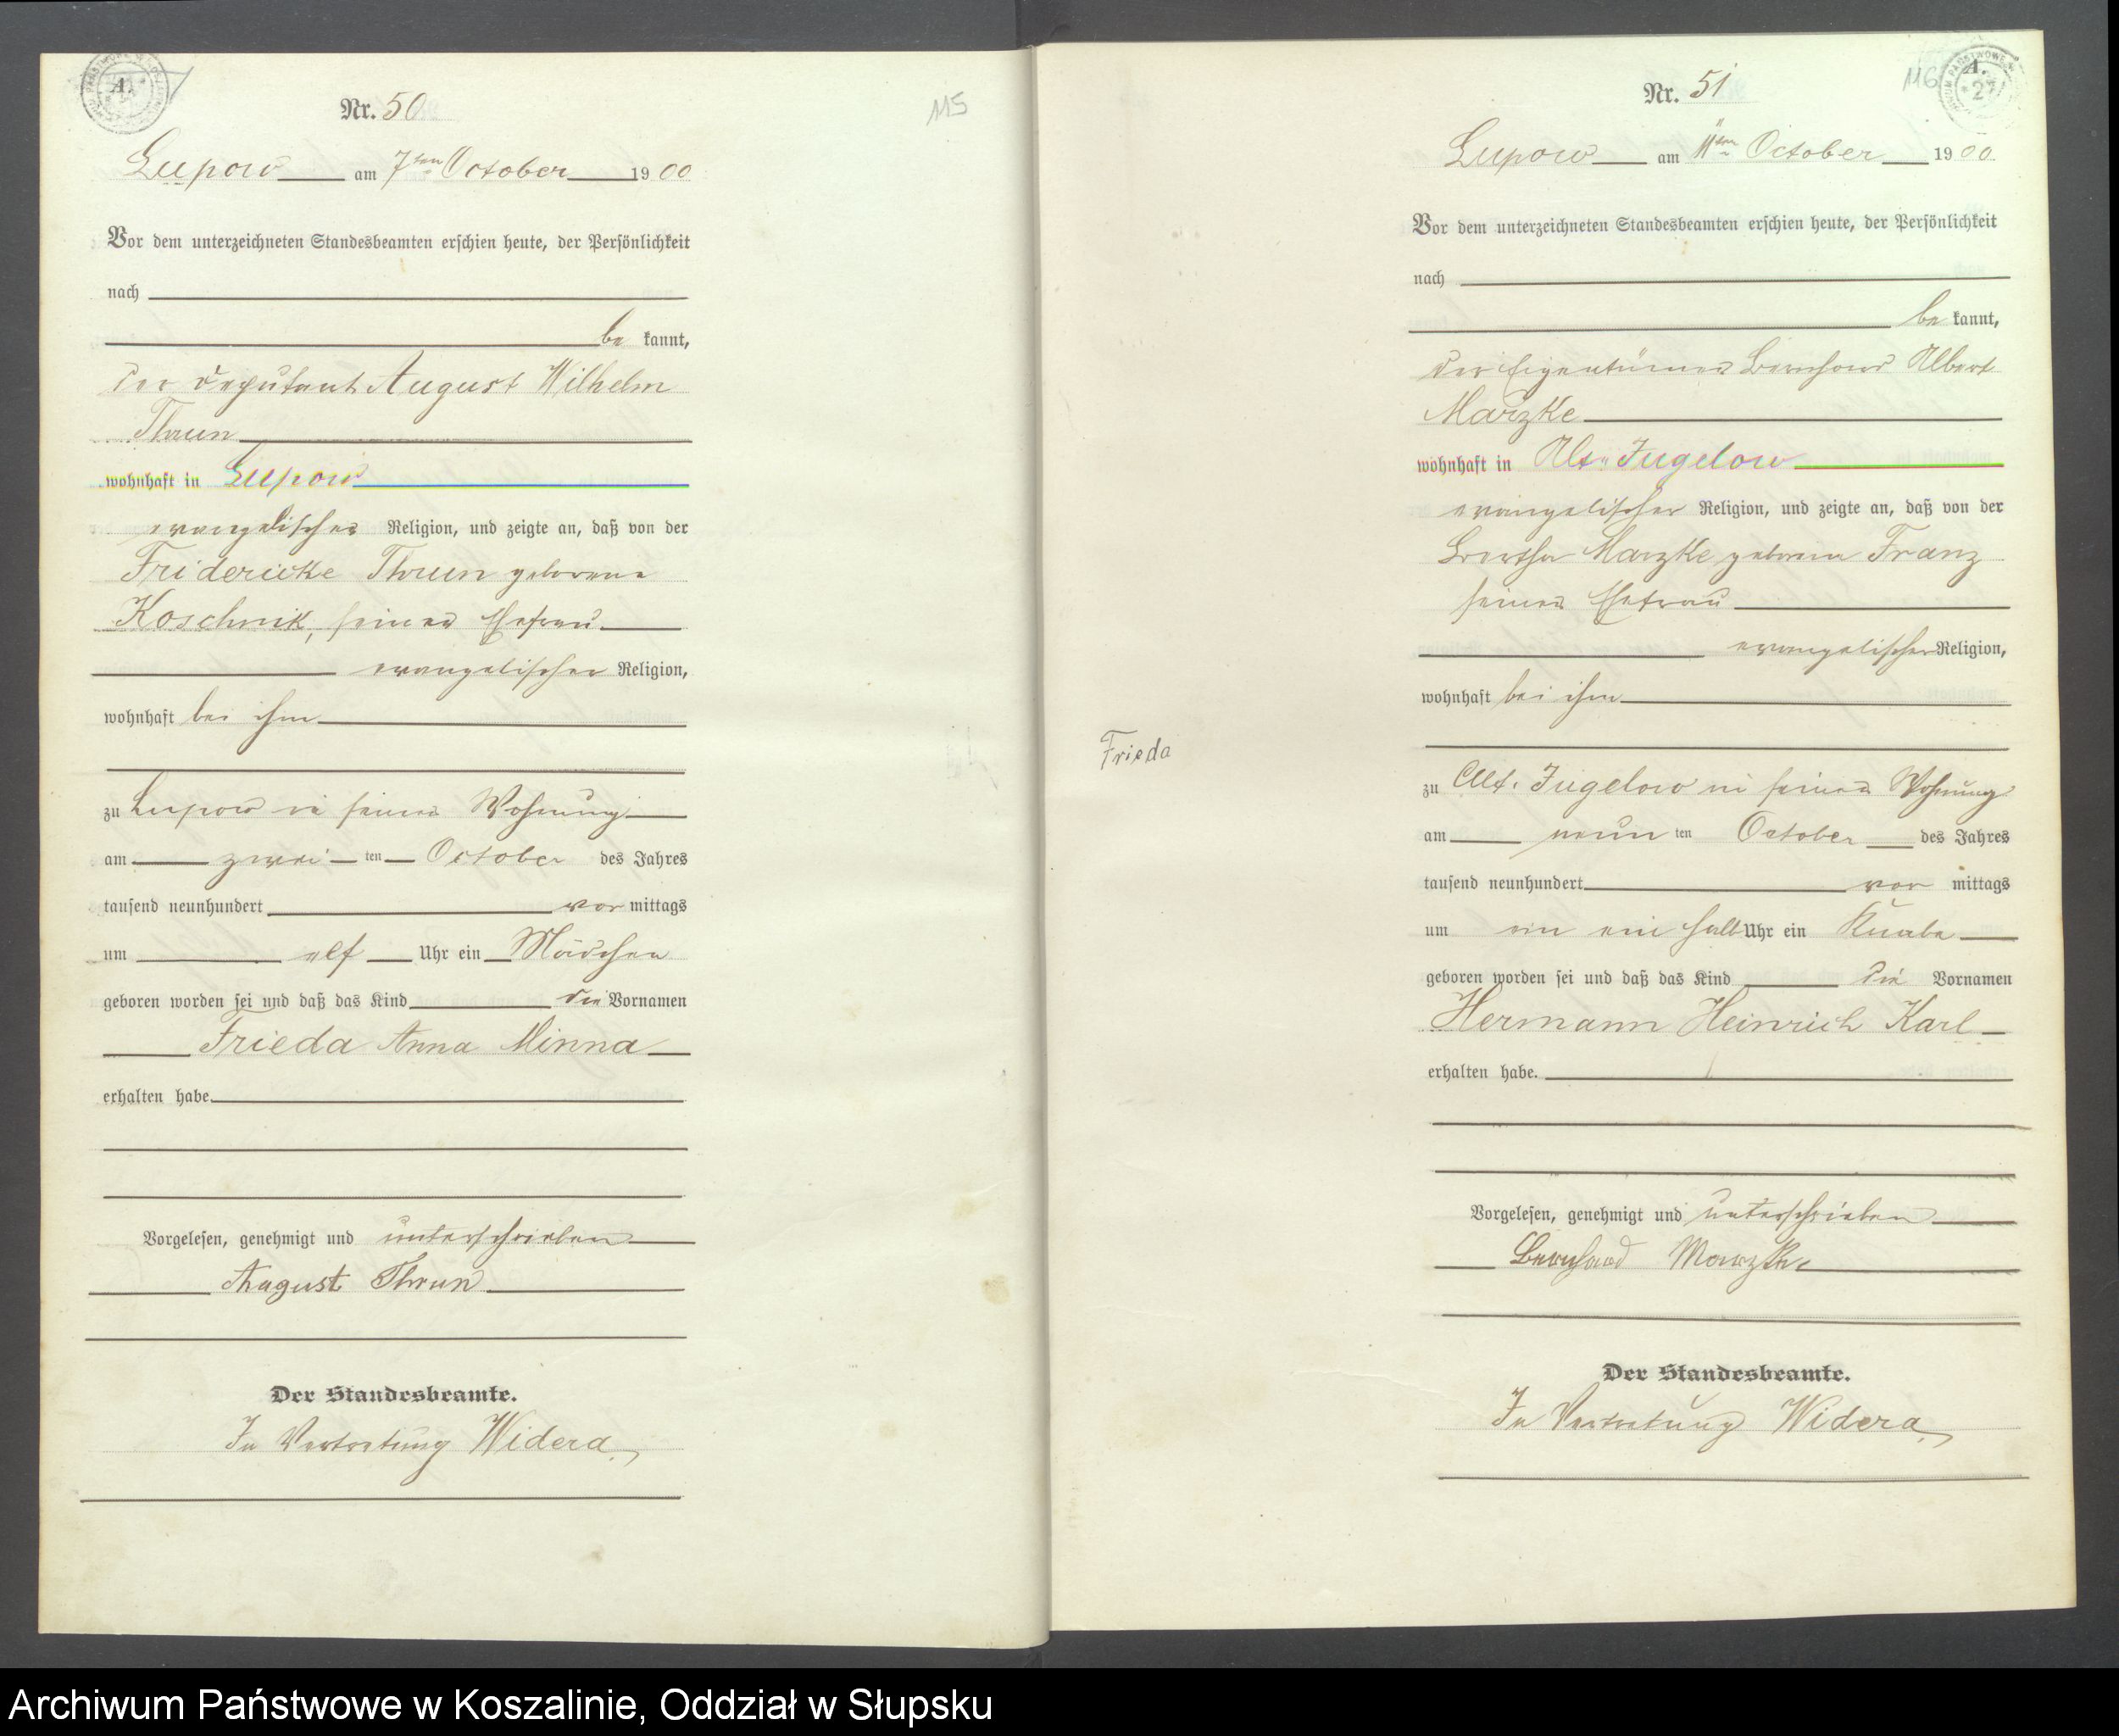 A.
Nr. 50
115
Lupow am 7ten October 1900
Vor dem unterzeichneten Standesbeamten erschien heute, der Persönlichkeit
nach
be kannt,
der Deputant August Wilhelm
Thrun
wohnhaft in Lupow
evangelischer Religion, und zeigte an, daß von der
Fridericke Thrun geborene
Koschnik, seiner Ehefrau
evangelischer Religion,
wohnhaft bei ihm
zu Lupow in seiner Wohnung
am zwei ten October des Jahres
tausend neunhundert vor mittags
um elf Uhr ein Mädchen
geboren worden sei und daß das Kind die Vornamen
Frieda Anna Minna
erhalten habe.
Vorgelesen, genehmigt und unterschrieben
August Thrun
Der Standesbeamte.
In Vertretung Widera
Frieda
116
A.
27
Nr. 51
Lupow am 11ten October 1900.
Vor dem unterzeichneten Standesbeamten erschien heute, der Persönlichkeit
nach
be kannt,
der Eigentümer Bernhard Albert
Marzke
wohnhaft in Alt-Jugelow
evangelischer Religion, und zeigte an, daß von der
Bertha Marzke geborene Franz
seiner Ehefrau
evangelischer Religion,
wohnhaft bei ihm
zu Alt-Jugelow in seiner Wohnung
am neun ten October des Jahres
tausend neunhundert vor mittags
um ein ein halb Uhr ein Knabe
geboren worden sei und daß das Kind die Vornamen
Hermann Heinrich Karl
erhalten habe.
Vorgelesen, genehmigt und unterschrieben
Bernhard Marzke
Der Standesbeamte.
In Vertretung Widera
Archiwum Państwowe w Koszalinie, Oddział w Słupsku